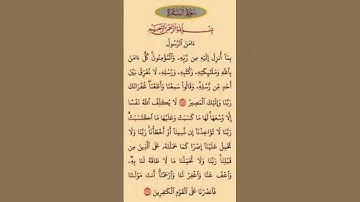 سُورَةُ البَقَرَةِ
بِسْمِ ٱللَّهِ ٱلرَّحْمَٰنِ ٱلرَّحِيمِ
ءَامَنَ ٱلرَّسُولُ
بِمَآ أُنزِلَ إِلَيْهِ مِن رَّبِّهِۦ وَٱلْمُؤْمِنُونَ كُلٌّ ءَامَنَ
بِٱللَّهِ وَمَلَٰٓئِكَتِهِۦ وَكُتُبِهِۦ وَرُسُلِهِۦ لَا نُفَرِّقُ بَيْنَ
أَحَدٍ مِّن رُّسُلِهِۦ وَقَالُوا۟ سَمِعْنَا وَأَطَعْنَا غُفْرَانَكَ
رَبَّنَا وَإِلَيْكَ ٱلْمَصِيرُ ۝ لَا يُكَلِّفُ ٱللَّهُ نَفْسًا
إِلَّا وُسْعَهَا لَهَا مَا كَسَبَتْ وَعَلَيْهَا مَا ٱكْتَسَبَتْ
رَبَّنَا لَا تُؤَاخِذْنَآ إِن نَّسِينَآ أَوْ أَخْطَأْنَا رَبَّنَا وَلَا
تَحْمِلْ عَلَيْنَآ إِصْرًا كَمَا حَمَلْتَهُۥ عَلَى ٱلَّذِينَ مِن
قَبْلِنَا رَبَّنَا وَلَا تُحَمِّلْنَا مَا لَا طَاقَةَ لَنَا بِهِۦ
وَٱعْفُ عَنَّا وَٱغْفِرْ لَنَا وَٱرْحَمْنَآ أَنتَ مَوْلَىٰنَا
فَٱنصُرْنَا عَلَى ٱلْقَوْمِ ٱلْكَٰفِرِينَ ۝